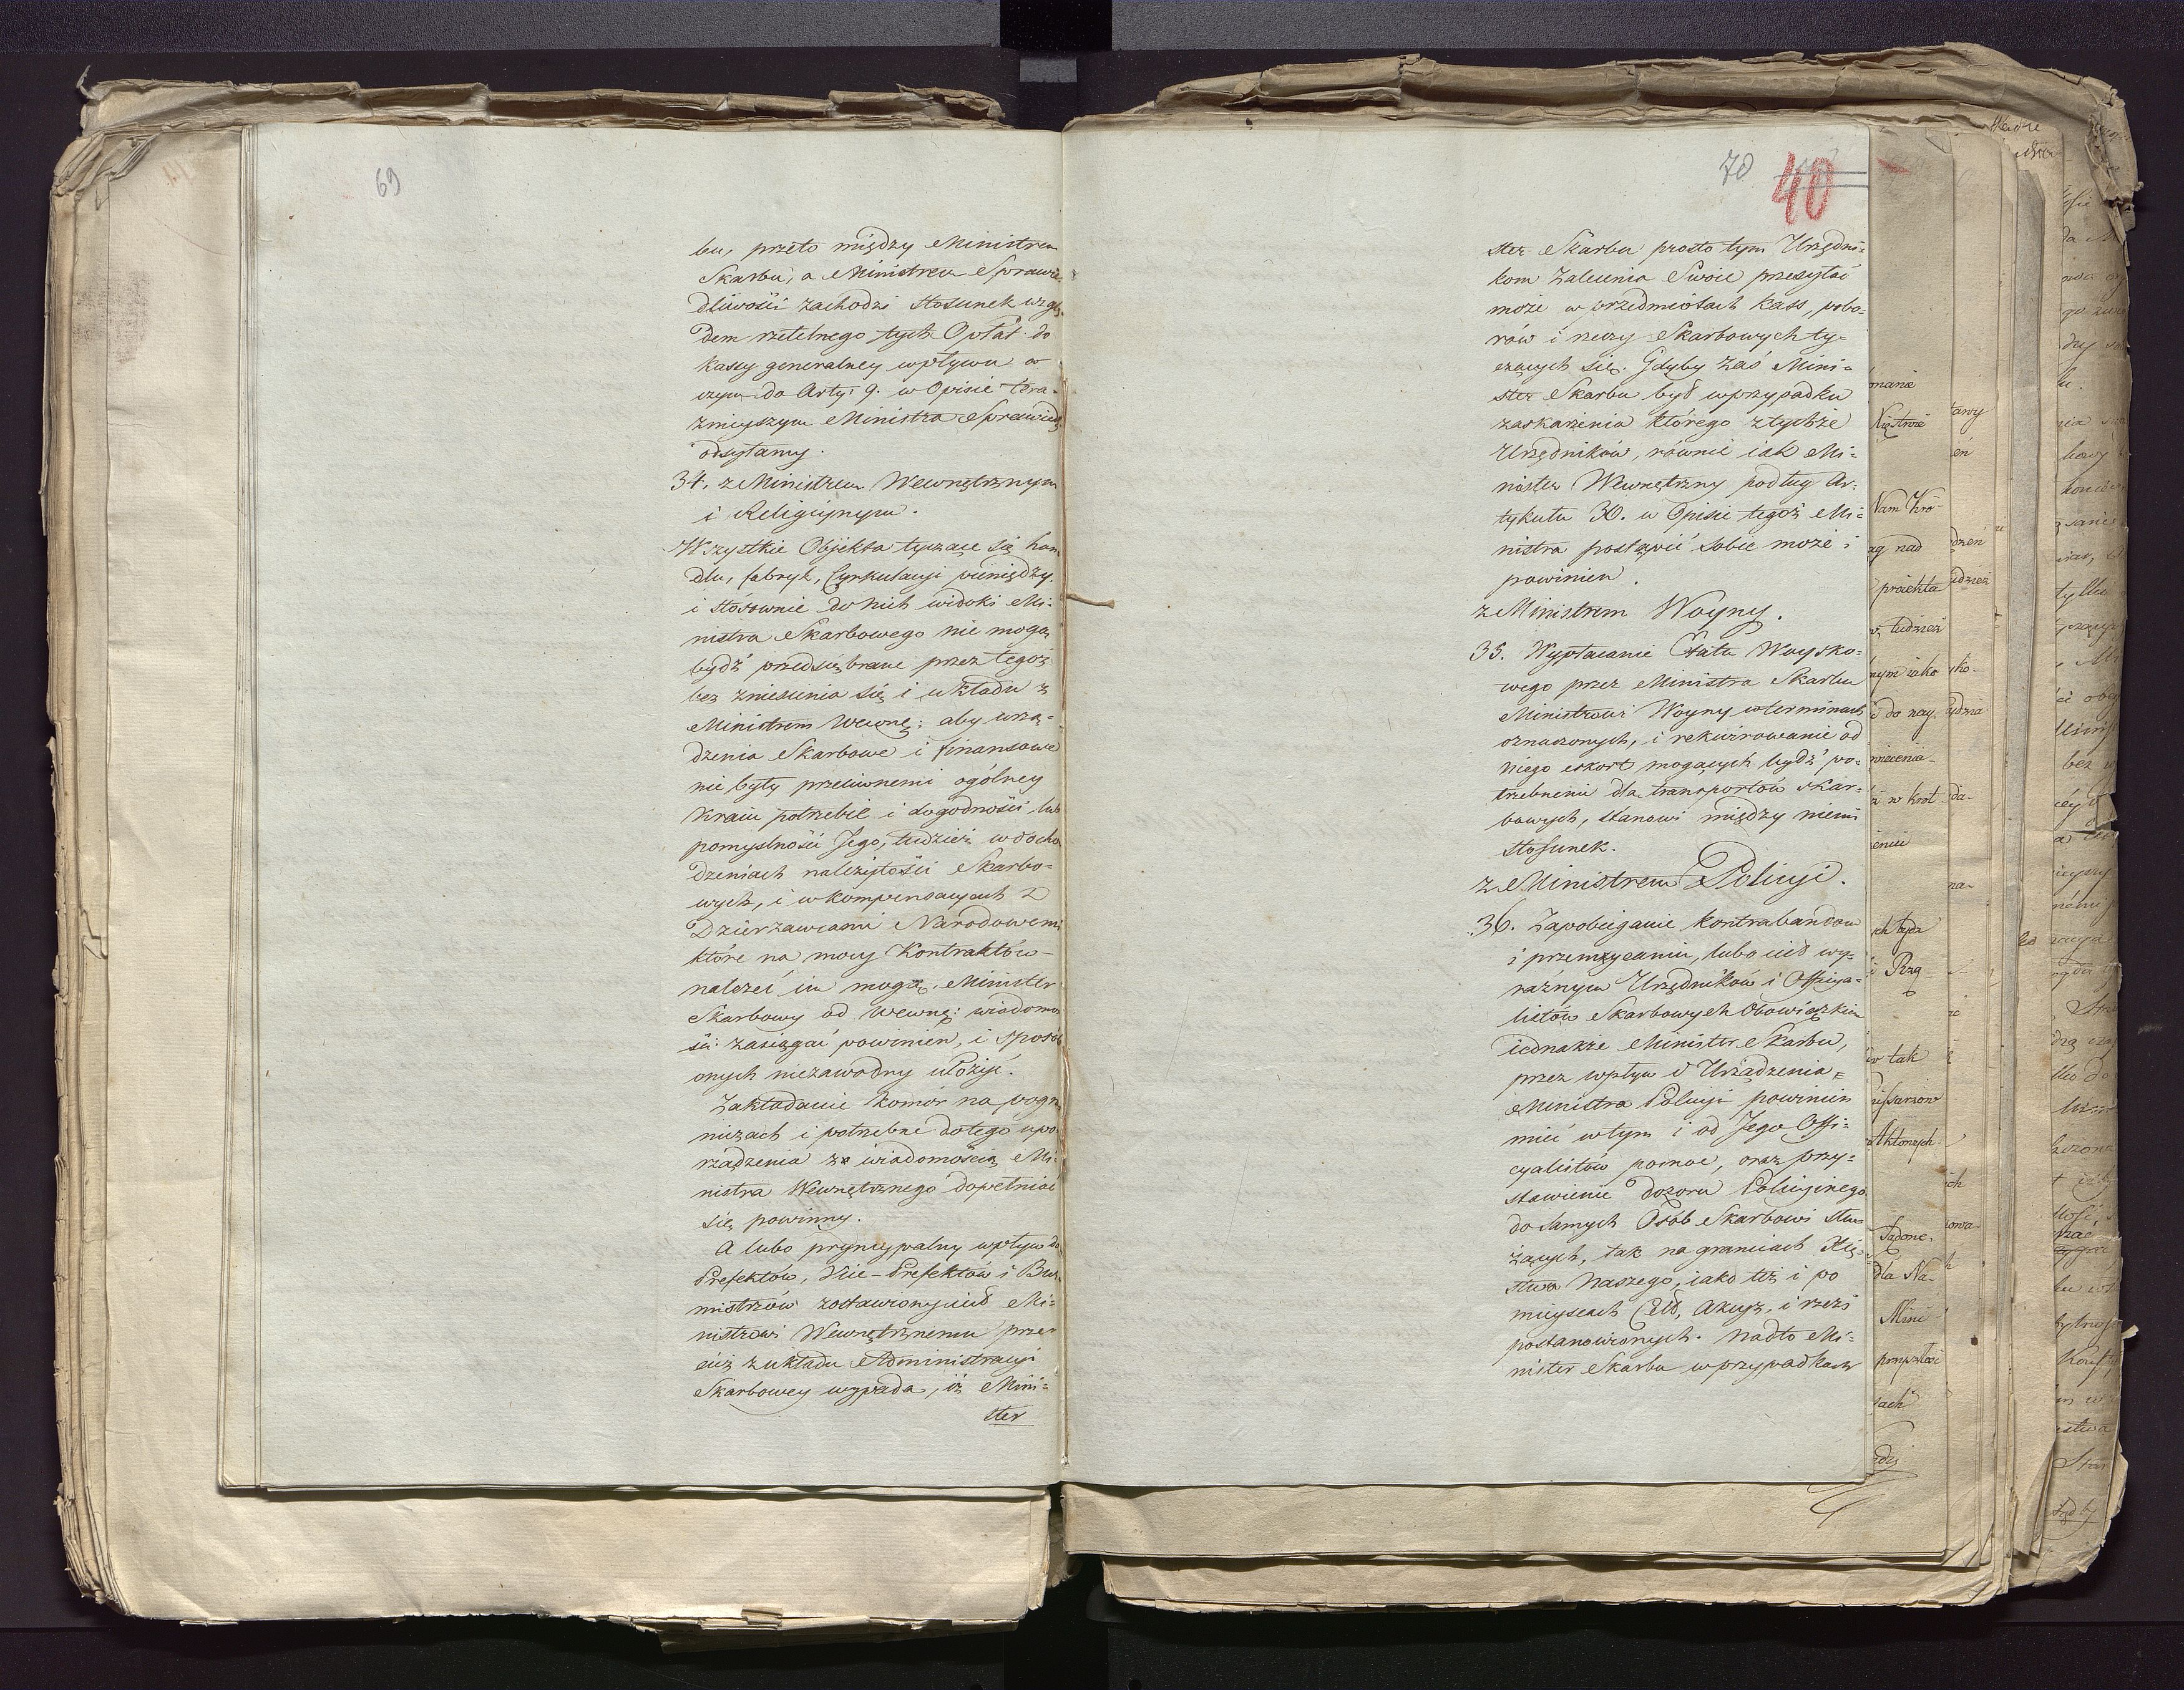 69
bu, przeto między Ministrem
Skarbu, a Ministrem Sprawie-
dliwości zachodzi stosunek wzglę-
dem rzetelnego tych Opłat do
kassy generalney wpływu o
czym do Arty: 9. w Opisie tera-
znieyszym Ministra Sprawied:
odsyłamy.
34. z Ministrem Wewnętrznym
i Religiynym.
Wszystkie Objekta tyczące się han
dlu, fabryk, Cyrkulacyi pieniędzy
i stósownie do nich widoki Mi=
nistra Skarbowego nie mogą
bydź przedsiębrane przez tegoż
bez zniesienia się i układu z
Ministrem Wewnę: aby urzą-
dzenia Skarbowe i finansowe
nie były przeciwnemi ogólney
Kraiu potrzebie i dogodności lub
pomyslności Jego, tudzież w docho
dzeniach należytości Skarbo-
wych, i w kompensacyach z
Dzierzawcami Narodowemi
które na mocy Kontraktów
należeć im mogą. Minister
Skarbowy od Wewnę: wiadomo
ści zasięgać powinien, i sposób
onych niezawodny ułożyć.
Zakładanie komór na pogra
niczach i potrzebne do tego upo
rządzenia za wiadomością Mi-
nistra Wewnętrznego dopełniać
się powinny.
A lubo pryncypalny wpływ do
Prefektów, Vice-Prefektów i Bur-
mistrzów zostawiony iest Mi=
nistrowi Wewnętrznemu prze
cież z układu Administracyi
Skarbowey wypada, iż Mini=
ster
70
40
ster Skarbu prosto tym Urzędni=
kom Zalecenia Swoie przesyłać
może w przedmiotach kass, pobo-
rów i rzeczy Skarbowych ty-
czących się. Gdyby zaś Mini-
ster Skarbu był w przypadku
zaskarżenia którego z tychże
Urzędników, równie iak Mi-
nister Wewnętrzny podług Ar-
tykułu 30. w Opisie tegoż Mi=
nistra postąpić sobie może i
powinien.
z Ministrem Woyny.
35. Wypłacanie Etatu Woysko=
wego przez Ministra Skarbu
Ministrowi Woyny w terminach
oznaczonych, i rekwirowanie od
niego eskort mogących bydź po=
trzebnemi dla transportów skar=
bowych, stanowi między niemi
stosunek.
z Ministrem Policyi.
36. Zapobieganie kontrabandom
i przemycaniu, lubo iest wy=
raźnym Urzędników i Officya=
listów Skarbowych Obowiązkiem
iednakże Minister Skarbu,
przez wpływ i Urządzenia
Ministra Policyi powinien
mieć w tym i od Jego Offi=
cyalistów pomoc, oraz przy=
stawienie dozoru Policyinego
do samych Osób Skarbowi słu=
żących, tak na granicach Xię=
stwa Naszego, iako też i po
mieyscach Ceł, Akcyz, i rzezi
postanowionych. Nadto Mi=
nister Skarbu w przypadkach